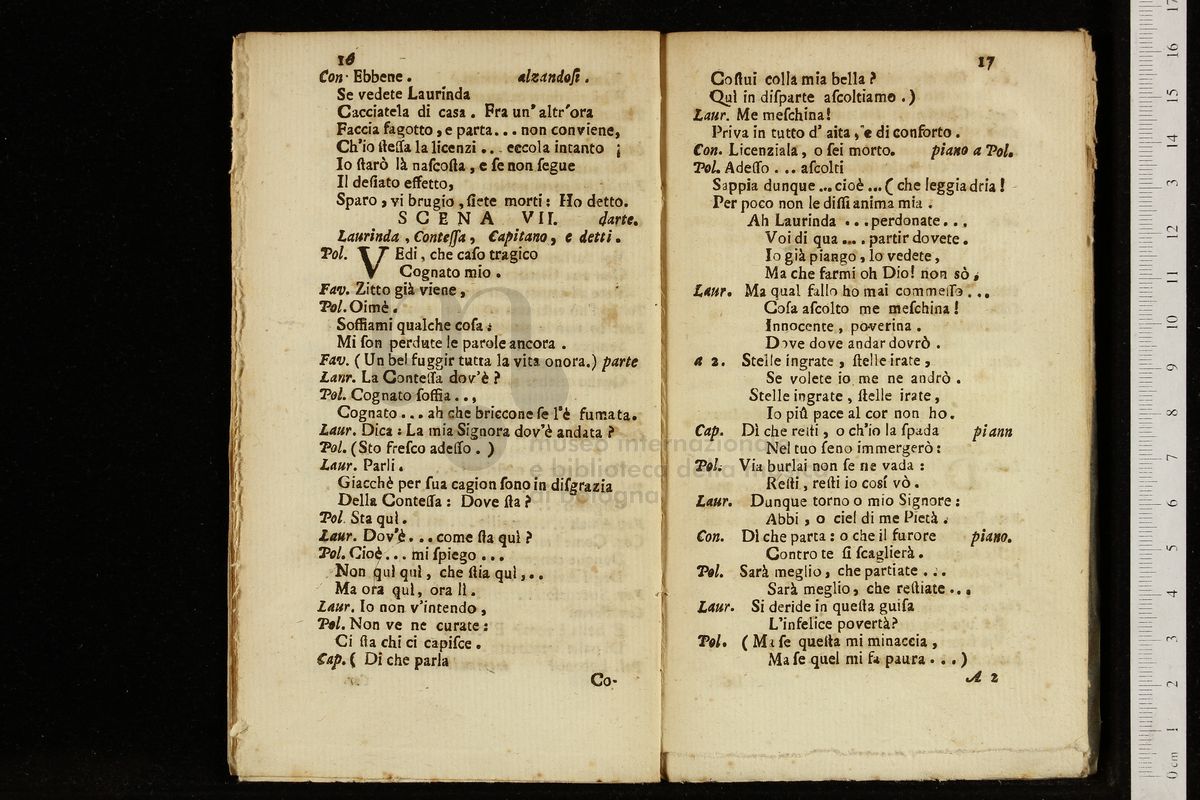 16
Con· Ebbene . alzandoſi .
Se vedete Laurinda
Cacciatela di casa . Fra un' altr'ora
Faccia fagotto , e parta... non conviene,
Ch'io ſteſſa la licenzi ... eccola intanto ;
Io ſtarò là naſcoſta , e ſe non ſegue
Il deſiato effetto,
Sparo , vi brugio , ſiete morti : Ho detto.
SCENA VII. darte.
Laurinda , Conteſſa , Capitano , e detti .
Pol. VEdi, che caſo tragico
Cognato mio .
Fav. Zitto già viene ,
Pol. Oimè .
Soffiami qualche coſa :
Mi ſon perdute le parole ancora .
Fav. ( Un bel fuggir tutta la vita onora.) parte
Laur. La Conteſſa dov'è ?
Pol. Cognato ſoffia . . ,
Cognato ... ah che briccone ſe l'è fumata.
Laur. Dica : La mia Signora dov'è andata ?
Pol. (Sto freſco adeſſo . )
Laur. Parli .
Giacchè per ſua cagion ſono in diſgrazia
Della Conteſſa : Dove ſta ?
Pol. Sta quì .
Laur. Dov'è ... come ſta quì ?
Pol. Cioè ... mi ſpiego ...
Non quì quì , che ſtia quì ,..
Ma ora quì, ora lì .
Laur. Io non v'intendo ,
Pol. Non ve ne curate :
Ci ſta chi ci capiſce .
Cap. ( Dì che parla
Co-
17
Coſtui colla mia bella ?
Quì in diſparte aſcoltiamo . )
Laur. Me meſchina !
Priva in tutto d' aita , e di conforto .
Con. Licenziala , o ſei morto. piano a Pol.
Pol. Adeſſo . .. aſcolti
Sappia dunque ... cioè ... ( che leggiadria !
Per poco non le diſſi anima mia .
Ah Laurinda ... perdonate ...
Voi di qua ... . partir dovete .
Io già piango , lo vedete ,
Ma che farmi oh Dio! non sò .
Laur. Ma qual fallo ho mai commeſſo ...
Coſa aſcolto me meſchina !
Innocente , poverina .
Dove dove andar dovrò .
a 2. Stelle ingrate , ſtelle irate ,
Se volete io me ne andrò .
Stelle ingrate , ſtelle irate,
Io più pace al cor non ho.
Cap. Dì che reſti , o ch'io la ſpada piann
Nel tuo ſeno immergerò :
Pol. Via burlai non ſe ne vada :
Reſti , reſti io così vò .
Laur. Dunque torno o mio Signore :
Abbi , o ciel di me Pietà .
Con. Dì che parta : o che il furore piano.
Contro te ſi ſcaglierà .
Pol. Sarà meglio , che partiate ...
Sarà meglio, che reſtiate ...
Laur. Si deride in queſta guiſa
L'infelice povertà?
Pol. ( Ma ſe queſta mi minaccia ,
Ma ſe quel mi fa paura . . . )
A 2
museo internazionale
e biblioteca della musica
di bologna
0 cm 1 2 3 4 5 6 7 8 9 10 11 12 13 14 15 16 17